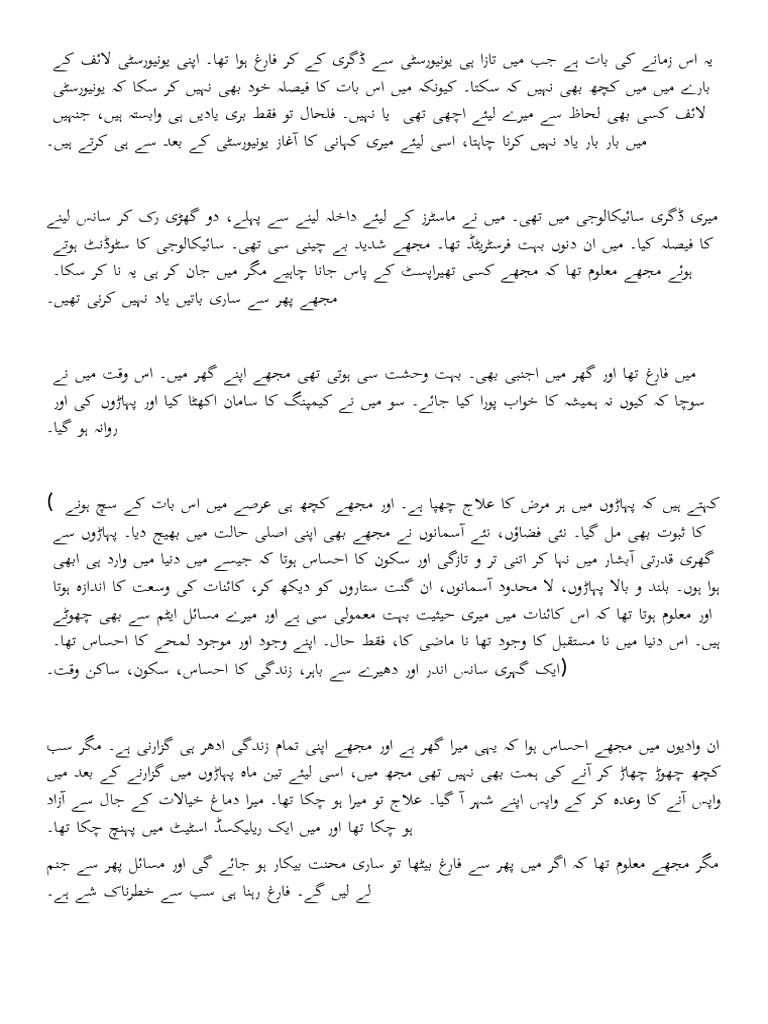 یہ اس زمانے کی بات ہے جب میں تازا ہی یونیورسٹی سے ڈگری کے کر فارغ ہوا تھا۔ اپنی یونیورسٹی لائف کے
بارے میں میں کچھ بھی نہیں کہ سکتا۔ کیونکہ میں اس بات کا فیصلہ خود بھی نہیں کر سکا کہ یونیورسٹی
لائف کسی بھی لحاظ سے میرے لیئے اچھی تھی یا نہیں۔ فلحال تو فقط بری یادیں ہی وابستہ ہیں، جنہیں
میں بار بار یاد نہیں کرنا چاہتا، اسی لیئے میری کہانی کا آغاز یونیورسٹی کے بعد سے ہی کرتے ہیں۔
میری ڈگری سائیکالوجی میں تھی۔ میں نے ماسٹرز کے لیئے داخلہ لینے سے پہلے، دو گھڑی رک کر سانس لینے
کا فیصلہ کیا۔ میں ان دنوں بہت فرسٹریٹڈ تھا۔ مجھے شدید بے چینی سی تھی۔ سائیکالوجی کا سٹوڈنٹ ہوتے
ہوئے مجھے معلوم تھا کہ مجھے کسی تھیراپسٹ کے پاس جانا چاہیے مگر میں جان کر ہی یہ نا کر سکا۔
مجھے پھر سے ساری باتیں یاد نہیں کرنی تھیں۔
میں فارغ تھا اور گھر میں اجنبی بھی۔ بہت وحشت سی ہوتی تھی مجھے اپنے گھر میں۔ اس وقت میں نے
سوچا کہ کیوں نہ ہمیشہ کا خواب پورا کیا جائے۔ سو میں نے کیمپنگ کا سامان اکھٹا کیا اور پہاڑوں کی اور
روانہ ہو گیا۔
کہتے ہیں کہ پہاڑوں میں ہر مرض کا علاج چھپا ہے۔ اور مجھے کچھ ہی عرصے میں اس بات کے سچ ہونے (
کا ثبوت بھی مل گیا۔ نئی فضاؤں، نئے آسمانوں نے مجھے بھی اپنی اصلی حالت میں بھیج دیا۔ پہاڑوں سے
گھری قدرتی آبشار میں نہا کر اتنی تر و تازگی اور سکون کا احساس ہوتا کہ جیسے میں دنیا میں وارد ہی ابھی
ہوا ہوں۔ بلند و بالا پہاڑوں، لا محدود آسمانوں، ان گنت ستاروں کو دیکھ کر، کائنات کی وسعت کا اندازہ ہوتا
اور معلوم ہوتا تھا کہ اس کائنات میں میری حیثیت بہت معمولی سی ہے اور میرے مسائل ایٹم سے بھی چھوٹے
ہیں۔ اس دنیا میں نا مستقبل کا وجود تھا نا ماضی کا، فقط حال۔ اپنے وجود اور موجود لمحے کا احساس تھا۔
)ایک گہری سانس اندر اور دھیرے سے باہر، زندگی کا احساس، سکون، ساکن وقت۔
ان وادیوں میں مجھے احساس ہوا کہ یہی میرا گھر ہے اور مجھے اپنی تمام زندگی ادھر ہی گزارنی ہے۔ مگر سب
کچھ چھوڑ چھاڑ کر آنے کی ہمت بھی نہیں تھی مجھ میں، اسی لیئے تین ماہ پہاڑوں میں گزارنے کے بعد میں
واپس آنے کا وعدہ کر کے واپس اپنے شہر آ گیا۔ علاج تو میرا ہو چکا تھا۔ میرا دماغ خیالات کے جال سے آزاد
ہو چکا تھا اور میں ایک ریلیکسڈ اسٹیٹ میں پہنچ چکا تھا۔
مگر مجھے معلوم تھا کہ اگر میں پھر سے فارغ بیٹھا تو ساری محنت بیکار ہو جائے گی اور مسائل پھر سے جنم
لے لیں گے۔ فارغ رہنا ہی سب سے خطرناک شے ہے۔